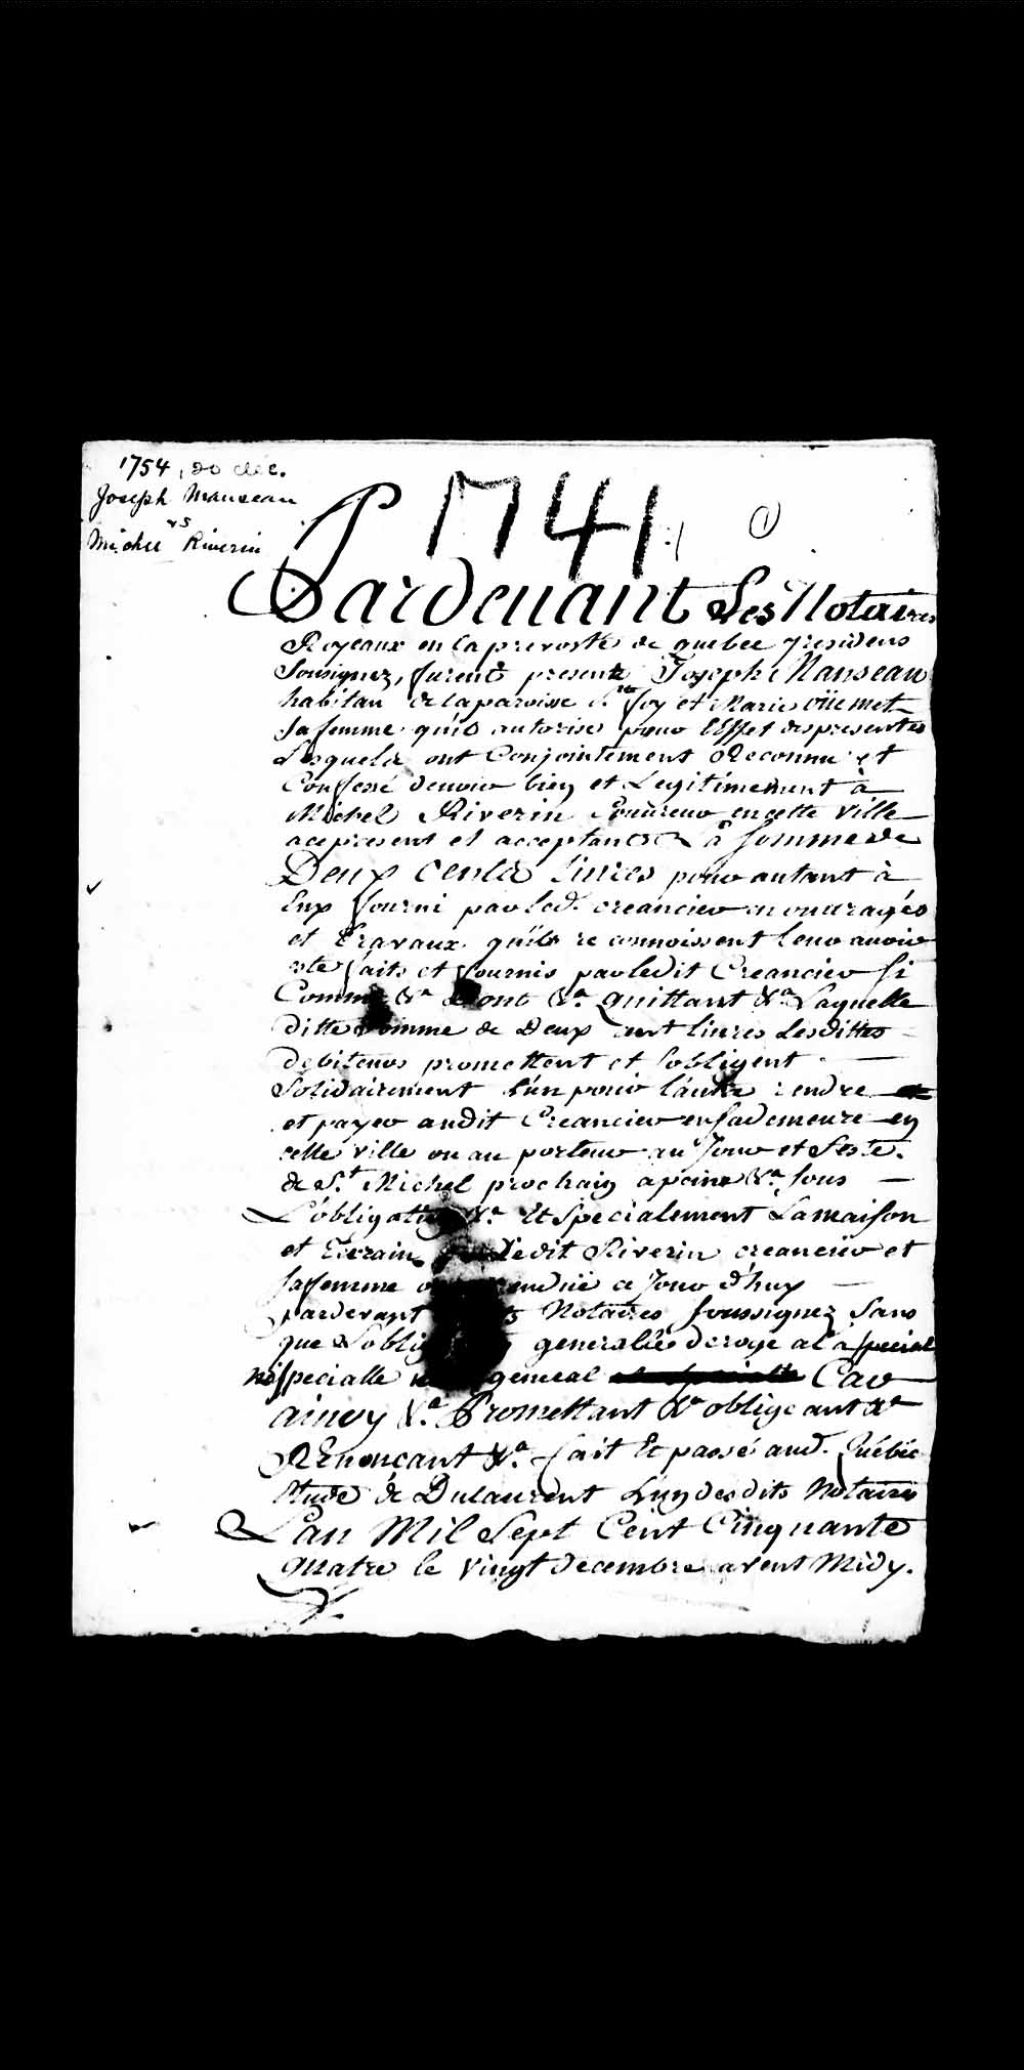 1754, 20 déc.
Joseph Manseau
vs
Michel Riverin
1741
Pardevant Les Notaires
Royeaux en la prevosté de quebec y residens
Soussignez, furent presents Joseph Manseau
habitan de la paroisse de Ste foy et Marie oüemet
sa femme qu'il autorise pour l'Effet des presentes
Lesquels ont Conjointement Reconnu et
Confessé devoir bien et Legitimement à
Michel Riverin en cette Ville
a ce present et acceptant La somme de
Deux Cents Livres pour autant à
Eux fourni par led. creancier en ouvrages
et Travaux qu'ils reconnoissent leur avoir
esté faits et fournis par ledit Creancier si
Comme &a Dont &a quittant &a Laquelle
ditte somme de Deux cent livres Lesdittes
debiteurs promettent et s'obligent
Solidairement l'un pour l'autre rendre
et payer audit Creancier en sa demeure en
cette ville ou au porteur au Jour et feste
de St. Michel prochain a peine &a. sous
L'obligation &a. Et Specialement La maison
et Terrain ledit Riverin creancier et
sa femme vendüe ce Jour d'huy
pardevant Notaires soussignez sans
que L'obligation generalle deroge a la special
ni specialle general Car
ainsy &a. Promettant &a obligeant &a
REnonçant &a. fait Et passé aud. Québec
Etude de Dulaurent L'un desdits Notaires
L'an Mil Sept Cent Cinquante
quatre le vingt decembre avent Midy.